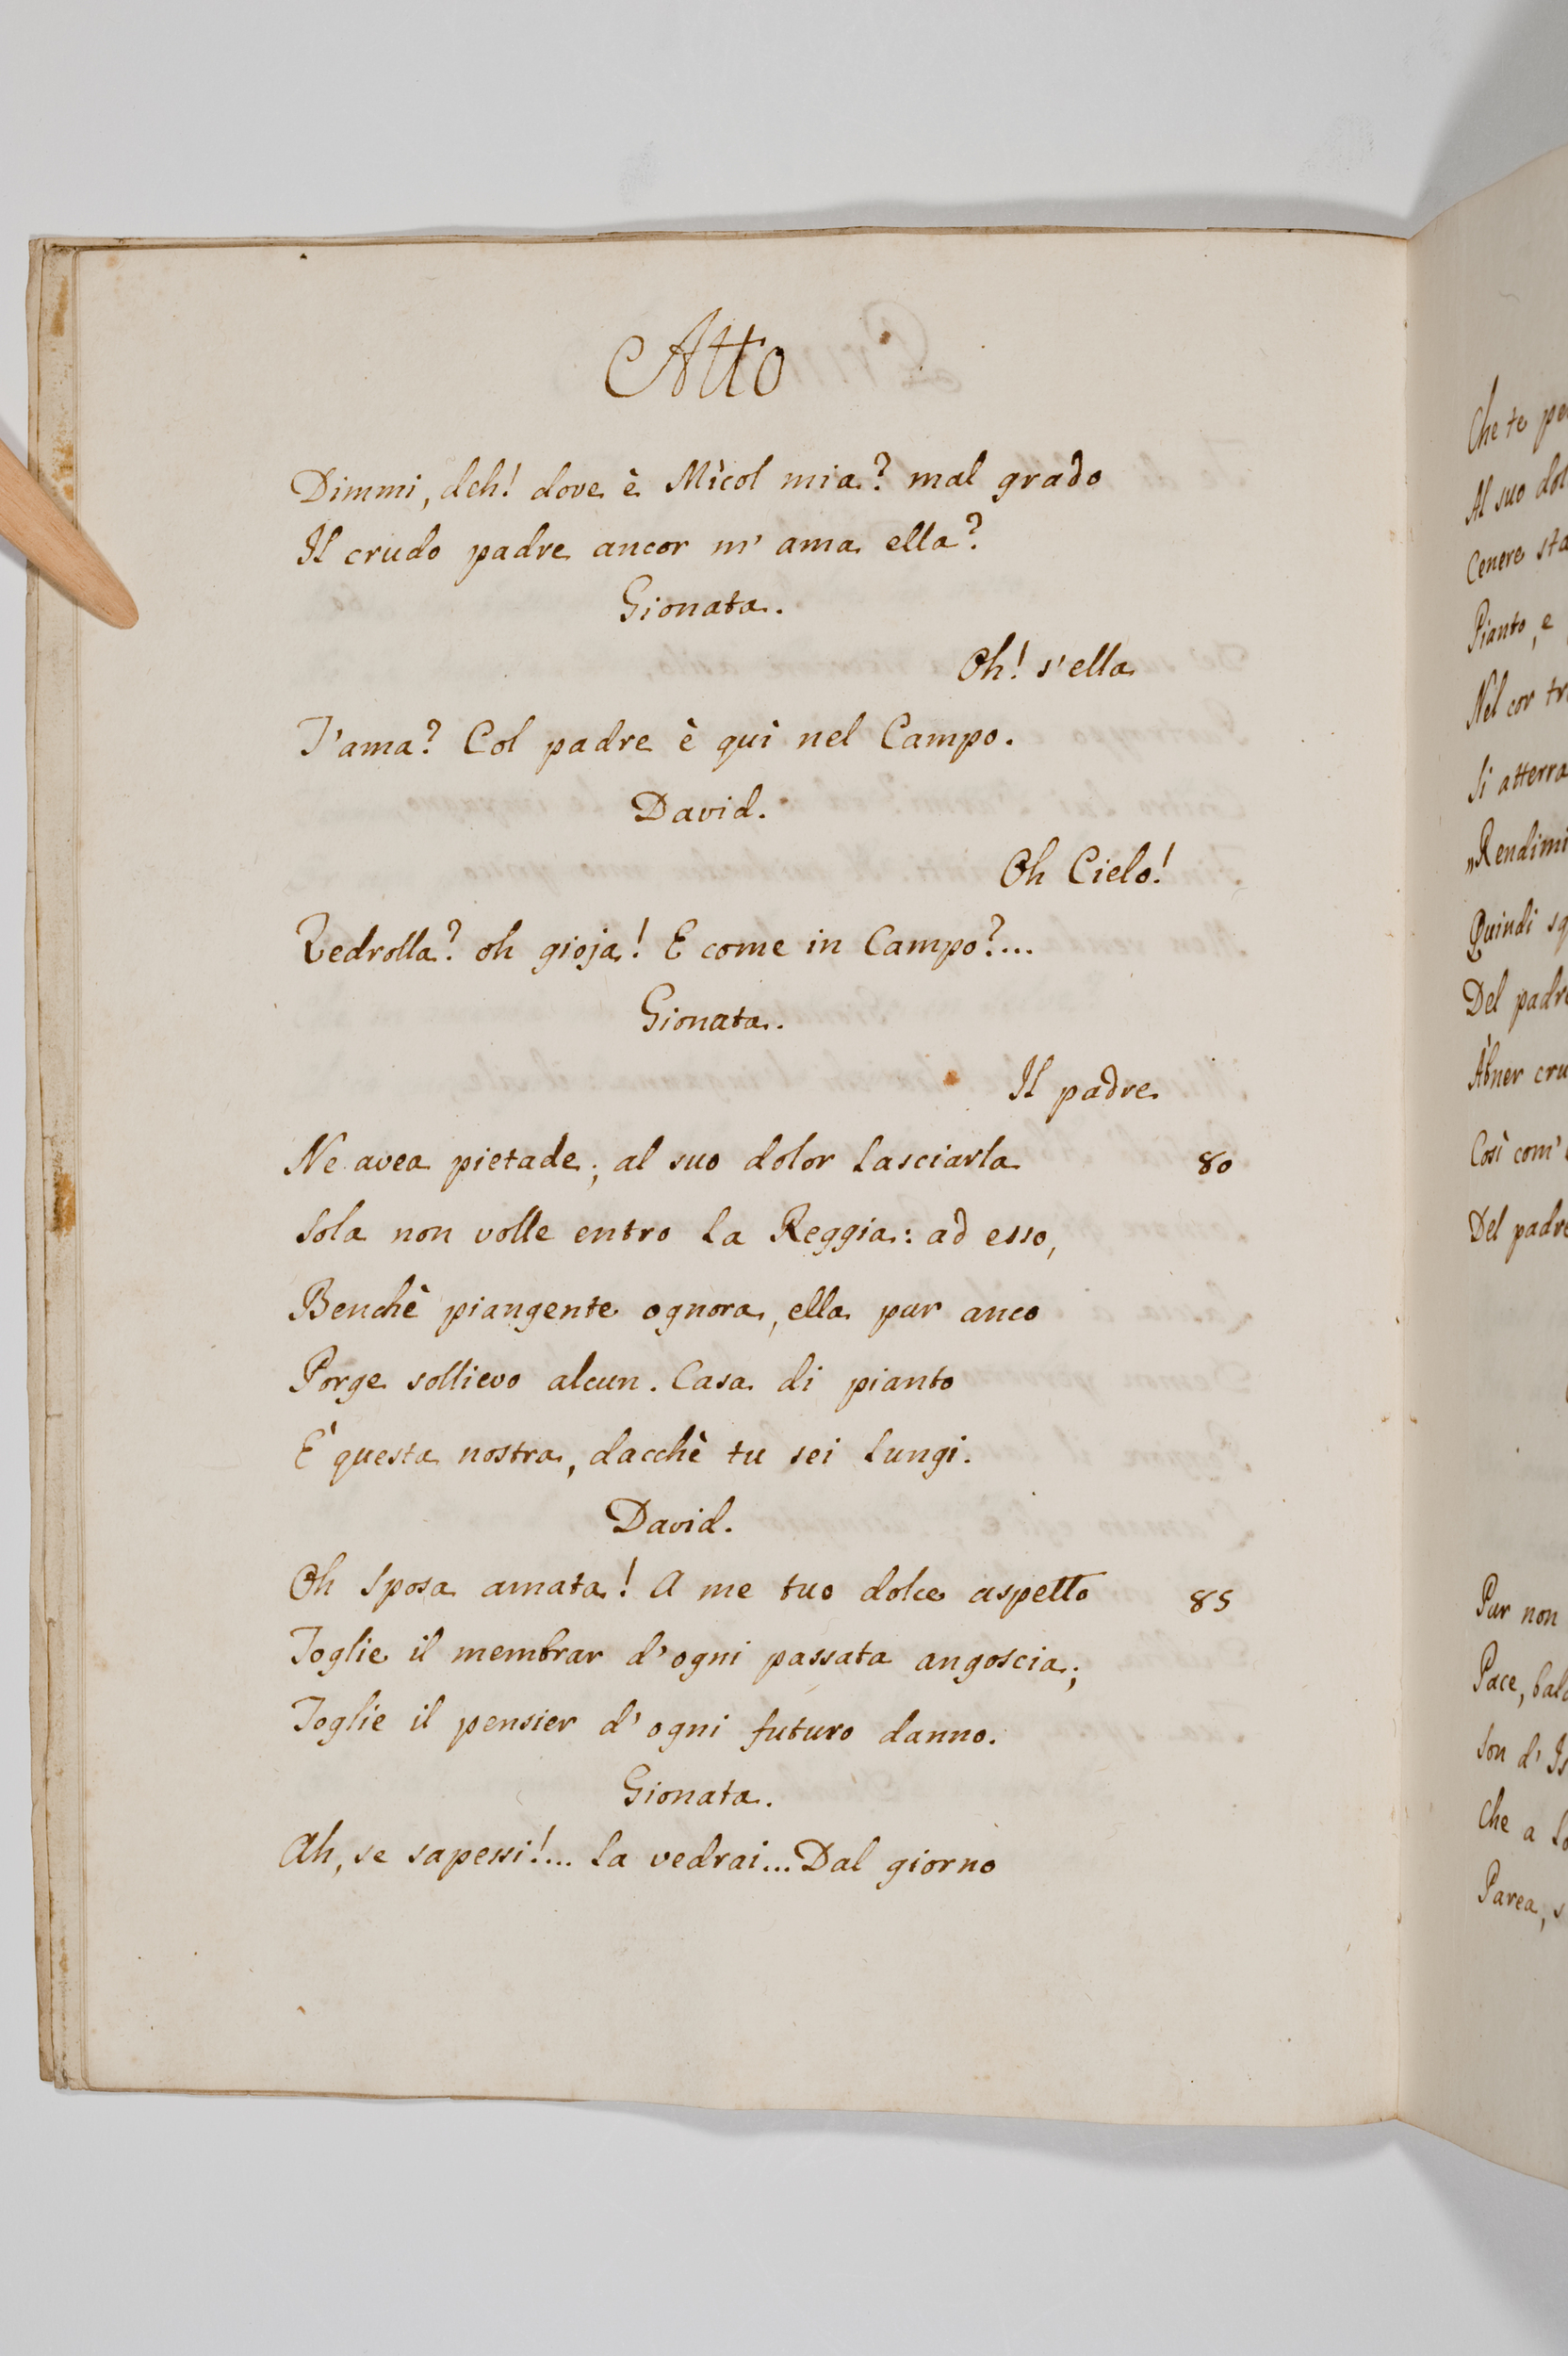 Atto
Dimmi, deh! dove è Mìcol mia? mal grado
Il crudo padre ancor m' ama ella?
Gionata.
Oh! s'ella
T'ama? Col padre è quì nel Campo.
David.
Oh Cielo!
Vedrolla? oh gioja! E come in Campo?...
Gionata.
Il padre
Ne avea pietade; al suo dolor lasciarla 80
Sola non volle entro la Reggia: ad esso,
Benchè piangente ognora, ella pur anco
Porge sollievo alcun. Casa di pianto
E' questa nostra, dacchè tu sei lungi.
David.
Oh Sposa amata! A me tuo dolce aspetto 85
Toglie il membrar d'ogni passata angoscia;
Toglie il pensier d'ogni futuro danno.
Gionata.
Ah, se sapessi!... la vedrai... Dal giorno
Che te
Al suo
Cenere
Pianto, e
Nel cor
Si atterra
„Rendimi
Quindi
Del padre
Àbner
Così com'
Del padre
Pur non
Pace,
Son d'
Che a
Parea,